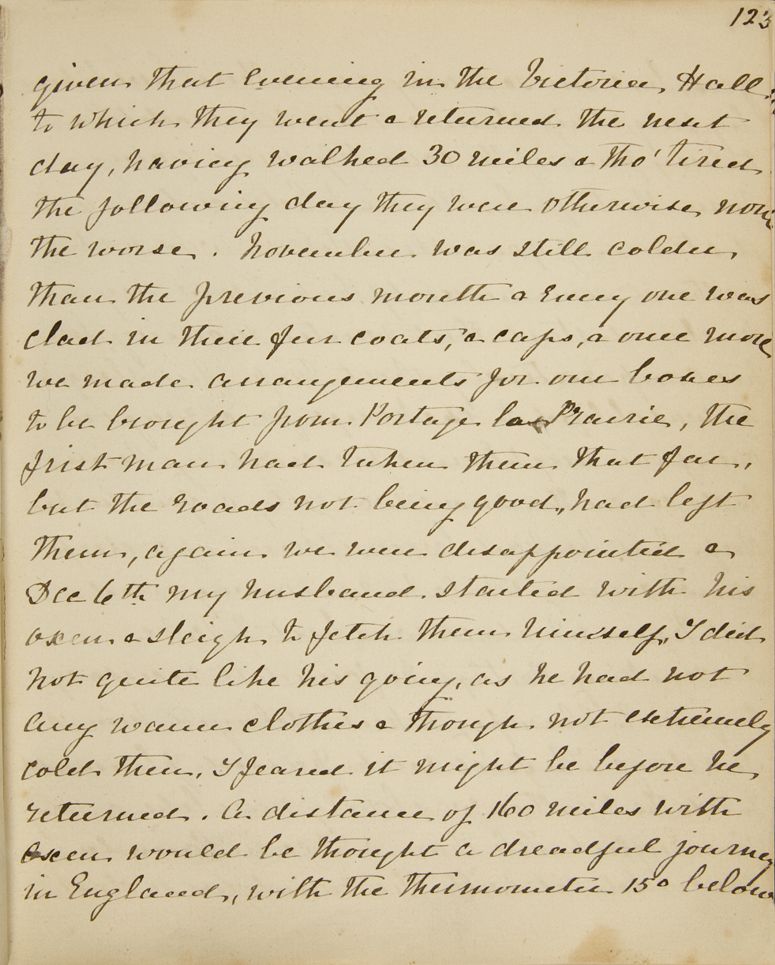 123
given that evening in the Victoria Hall,
to which they went & returned the next
day, having walked 30 miles & tho' tired
the following day they were otherwise none
the worse. November was still colder
than the previous month & every one was
clad in their fur coats, & caps, & once more
we made arrangements for our boxes
to be brought from Portage la Prairie, the
first man had taken them that far,
but the roads not being good, had left
them, again we were disappointed &
Dec 6th my husband started with his
oxen & sleigh to fetch them himself, I did
not quite like his going, as he had not
any warm clothes & though not extremely
cold then, I feared it might be before he
returned. A distance of 160 miles with
oxen would be thought a dreadful journey
in England, with the Thermometer 15° below